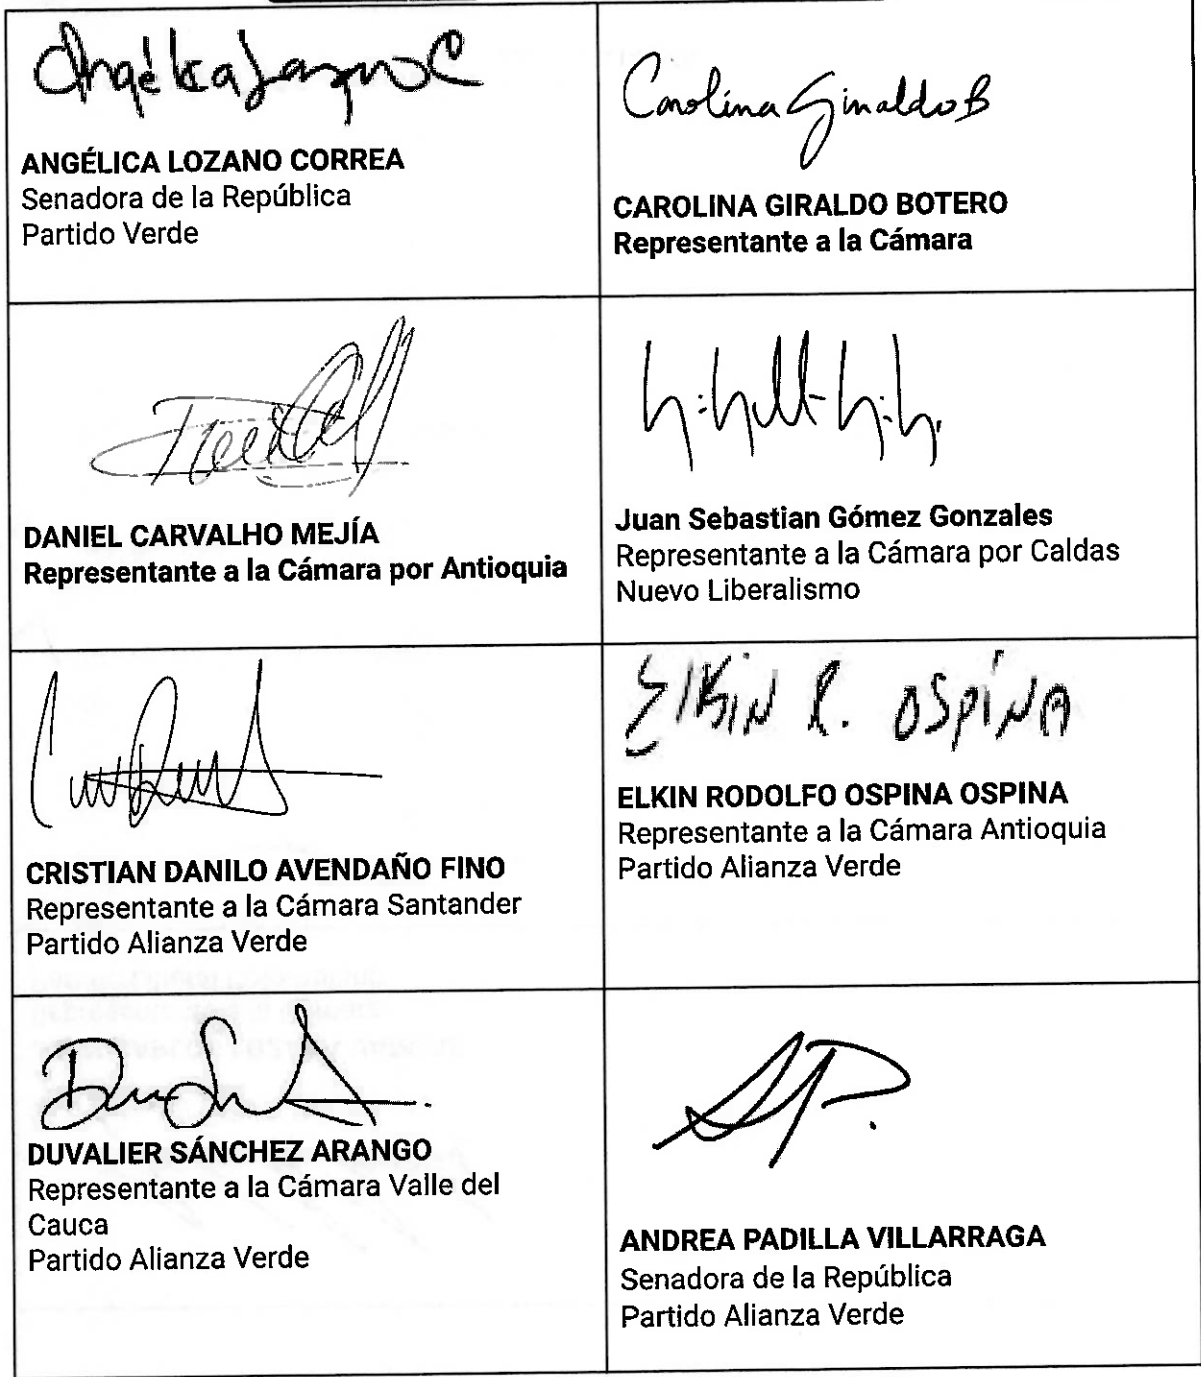 Angélica Lozano C
ANGÉLICA LOZANO CORREA
Senadora de la República
Partido Verde
Carolina Giraldo B
CAROLINA GIRALDO BOTERO
Representante a la Cámara
DANIEL CARVALHO MEJÍA
Representante a la Cámara por Antioquia
Juan Sebastian Gómez Gonzales
Representante a la Cámara por Caldas
Nuevo Liberalismo
CRISTIAN DANILO AVENDAÑO FINO
Representante a la Cámara Santander
Partido Alianza Verde
ElKiN R. OSPiNA
ELKIN RODOLFO OSPINA OSPINA
Representante a la Cámara Antioquia
Partido Alianza Verde
DUVALIER SÁNCHEZ ARANGO
Representante a la Cámara Valle del
Cauca
Partido Alianza Verde
ANDREA PADILLA VILLARRAGA
Senadora de la República
Partido Alianza Verde